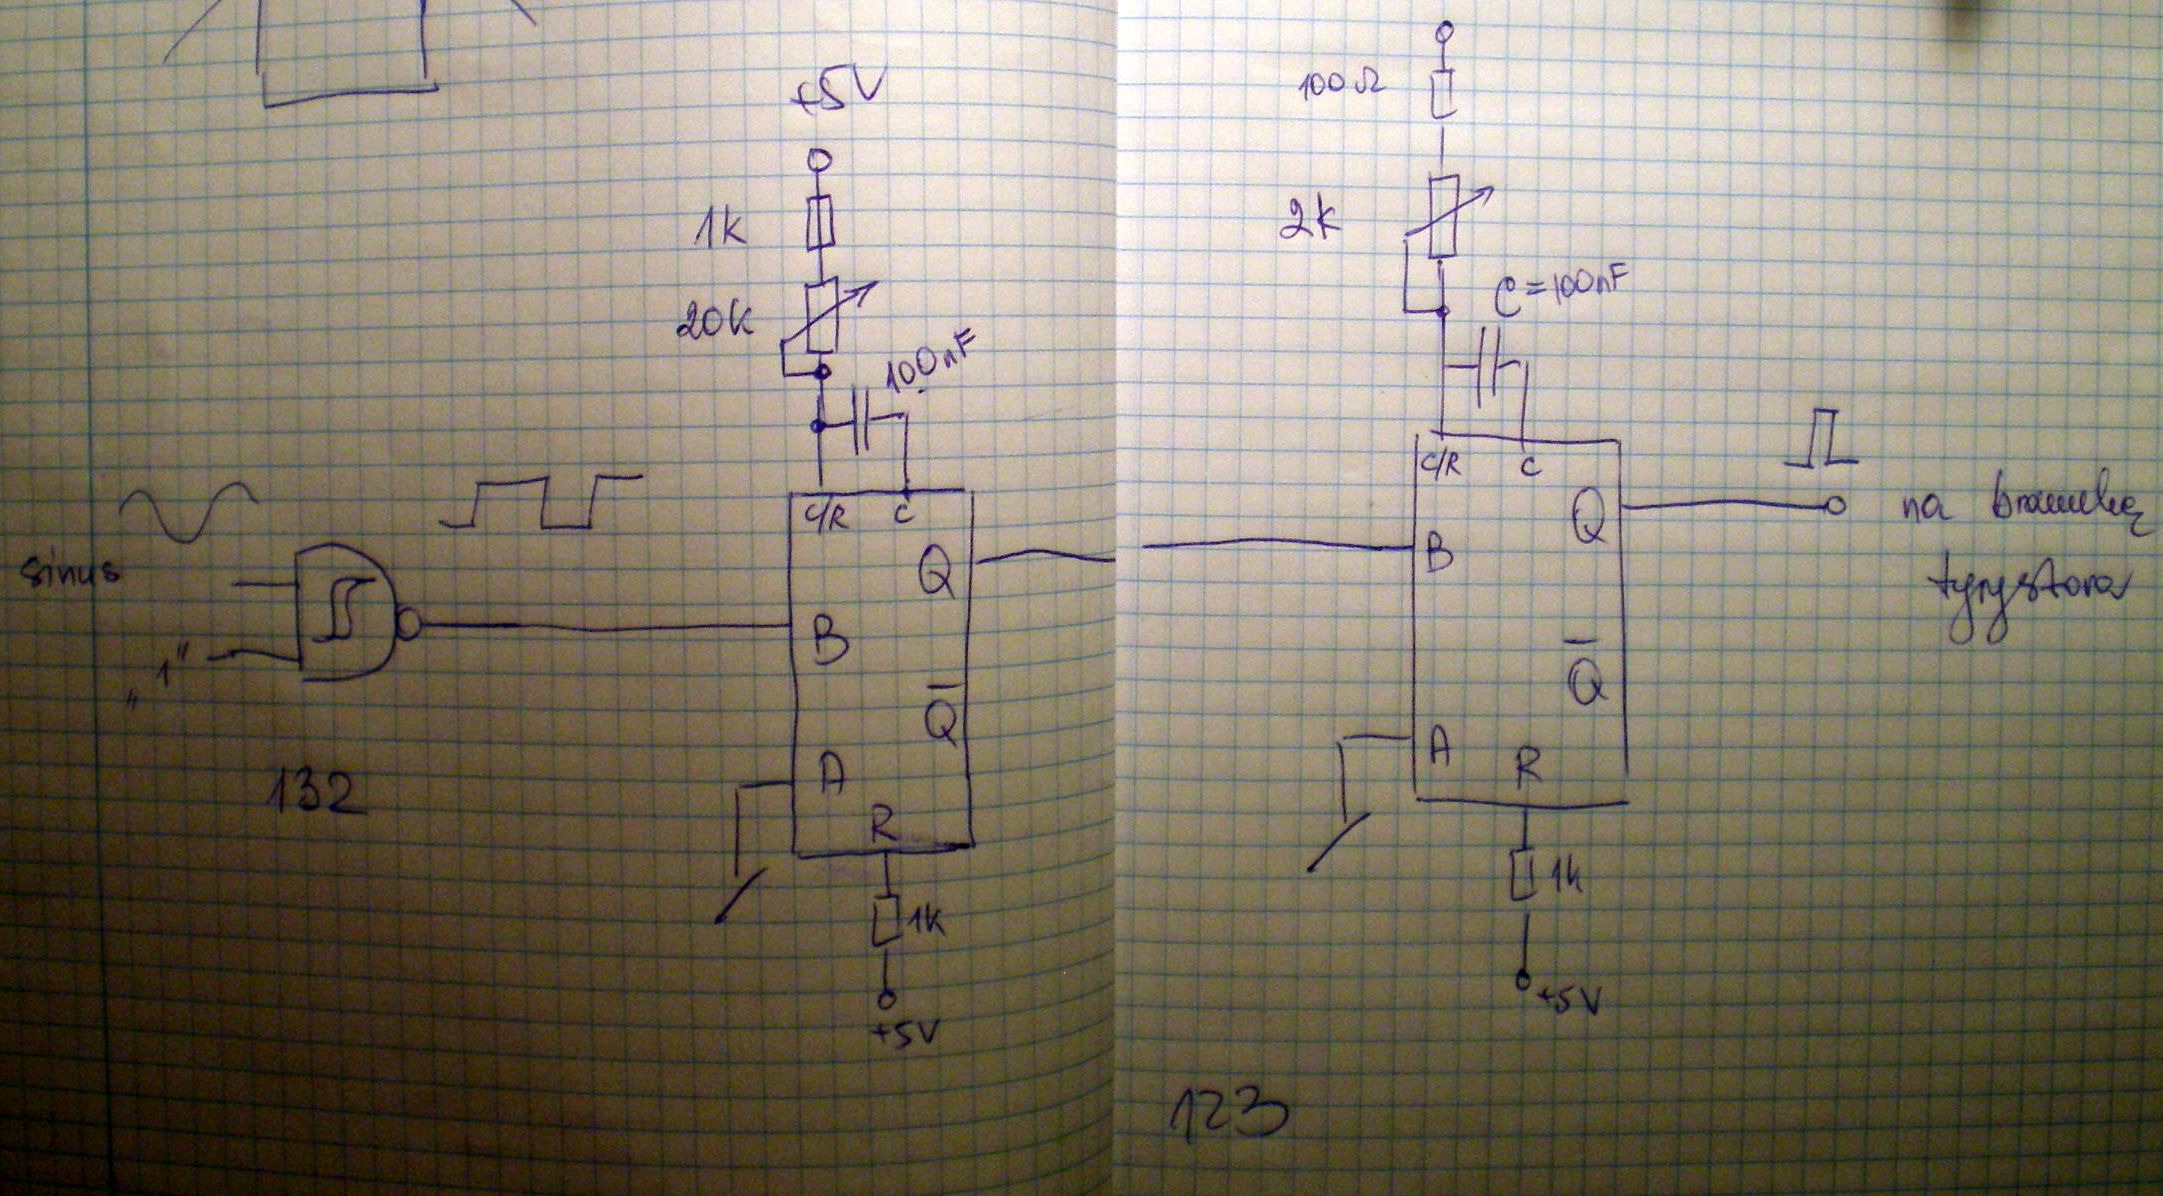 +5V
1k
20k
100nF
sinus
„1"
132
C/R C
Q
B
Q̅
A
R
1k
+5V
100Ω
2k
C=100nF
C/R C
Q
B
Q̅
A
R
1k
+5V
na bramkę
tyrystora
123